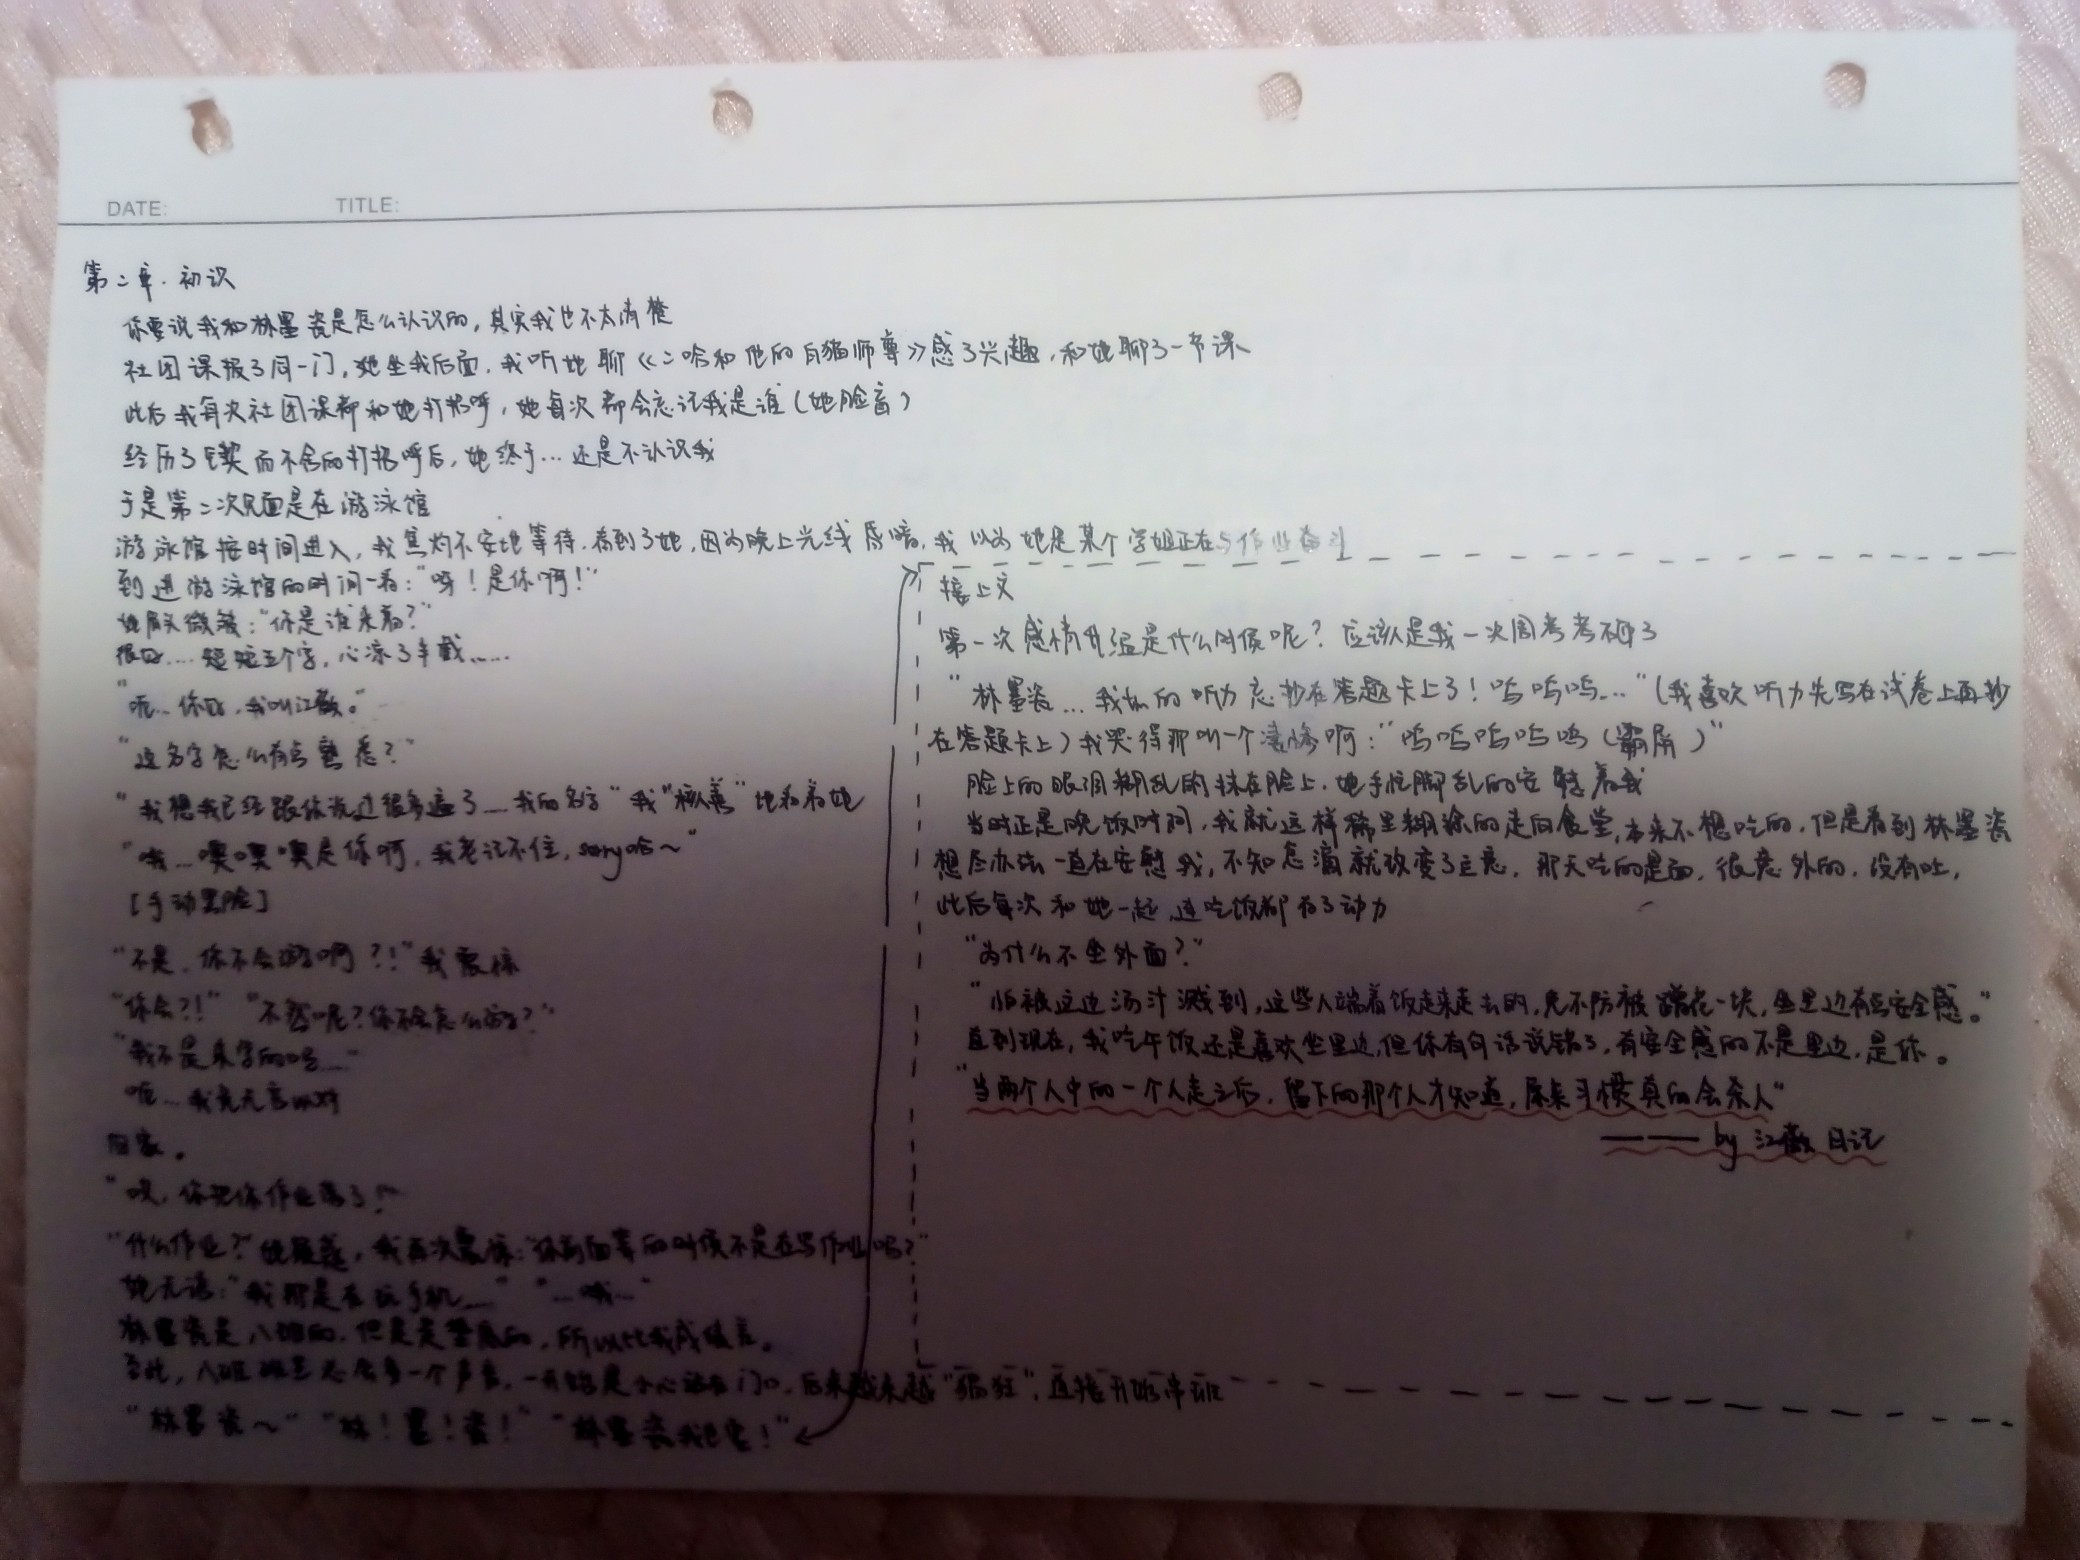 DATE:
TITLE:
第二章.初识
你要说我和林墨瓷是怎么认识的，其实我也不太清楚
社团课报了同一门，她坐我后面，我听她聊《二哈和他的白猫师尊》感了兴趣，和她聊了一节课
此后我每次社团课都和她打招呼，她每次都会忘记我是谁（她脸盲）
经历了锲而不舍的打招呼后，她终于…还是不认识我
于是第二次见面是在游泳馆
游泳馆按时间进入，我焦灼不安地等待，看到了她，因为晚上光线昏暗，我以为她是某个学姐正在与作业奋斗
到进游泳馆的时间一看：“呀！是你啊！”
她眉头微皱：“你是谁来着？”
很好....短短五个字，心凉了半截......
“呃...你好，我叫江歉。”
“这名字怎么有点熟悉？”
“我想我已经跟你说过很多遍了....我的名字”我“核善”地看着她
“哦...噢噢噢是你啊，我老记不住，sorry哈~”
[手动黑脸]
“不是，你不会游啊?!”我震惊
“你会?!” “不然呢？你不会怎么游？”
“我不是来学的吗....”
呃...我竟无言以对
回家。
“哎，你把你作业落了！”
“什么作业？”她疑惑，我再次震惊：“你前面等的时候不是在写作业吗？”
她无语：“我那是在玩手机....” “...哦...”
林墨瓷是八班的，但是是垫底的，所以比我成绩差。
至此，八班班里总会多一个声音，一开始是小心站在门口，后来越来越“猖狂”，直接开始串班
“林墨瓷~” “林！墨！瓷！” “林墨瓷我来！”
接上文
第一次感情升温是什么时候呢？应该是我一次周考考砸了
“林墨瓷...我的听力忘抄在答题卡上了！呜呜呜...”（我喜欢听力先写在试卷上再抄
在答题卡上）我哭得那叫一个凄惨啊：“呜呜呜呜呜（霸屏）”
脸上的眼泪糊乱的抹在脸上，她手忙脚乱的安慰着我
当时正是晚饭时间，我就这样稀里糊涂的走向食堂，本来不想吃的，但是看到林墨瓷
想尽办法一直在安慰我，不知怎滴就改变了主意，那天吃的是面，很意外的，没有吐，
此后每次和她一起，连吃饭都有了动力
“为什么不坐外面？”
“怕被这边汤汁溅到，这些人端着饭走来走去的，免不防被蹭花一块，坐里边有点安全感。”
直到现在，我吃午饭还是喜欢坐里边，但你有句话说错了，有安全感的不是里边，是你。
“当两个人中的一个人走之后，留下的那个人才知道，原来习惯真的会杀人”
——— by 江歉 日记